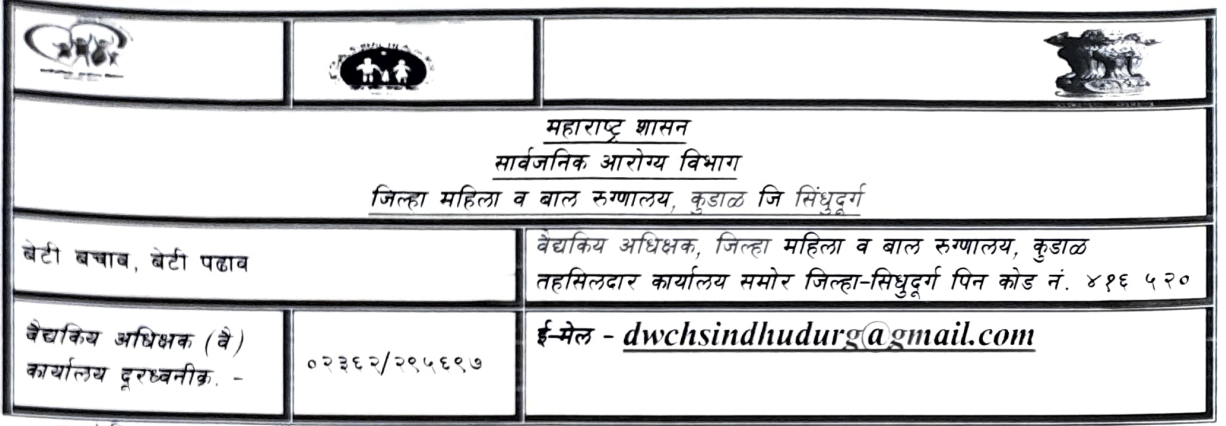 महाराष्ट्र शासन
सार्वजनिक आरोग्य विभाग
जिल्हा महिला व बाल रुग्णालय, कुडाळ जि सिंधुदूर्ग
बेटी बचाव, बेटी पढाव
वैद्यकिय अधिक्षक, जिल्हा महिला व बाल रुग्णालय, कुडाळ
तहसिलदार कार्यालय समोर जिल्हा-सिधुदूर्ग पिन कोड नं. ४१६ ५२०
वैद्यकिय अधिक्षक (वै)
कार्यालय दूरध्वनीक्र. -
०२३६२/२९५६९७
ई-मेल - dwchsindhudurg@gmail.com